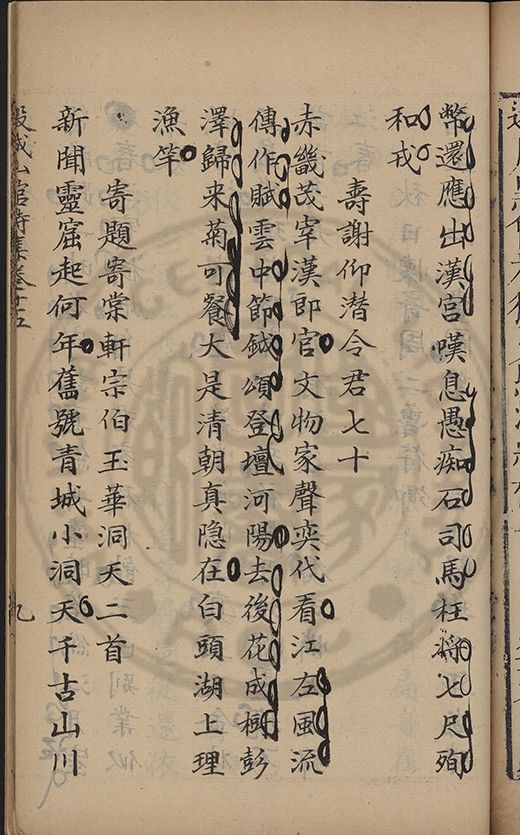 幣還應出漢宮嘆息愚痴石司馬枉將七尺殉
和戎
壽謝仰潛令君七十
赤畿茂宰漢郎官文物家聲奕代看江左風流
傳作賦雲中節鉞頌登壇河陽去後花成樹彭
澤歸来菊可餐大是清朝真隐在白頭湖上理
漁竿
寄題寄棠軒宗伯玉華洞天二首
新聞靈窟起何年舊號青城小洞天千古山川
穀城山館詩集卷十五
九